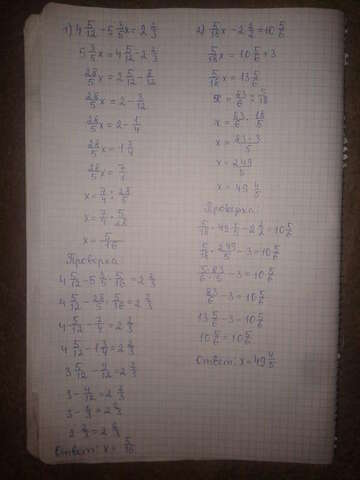 1) 4 5/12 - 5 3/5 x = 2 2/3
5 3/5 x = 4 5/12 - 2 2/3
28/5 x = 2 5/12 - 8/12
28/5 x = 2 - 3/12
28/5 x = 2 - 1/4
28/5 x = 1 3/4
28/5 x = 7/4
x = 7/4 : 28/5
x = 7/4 · 5/28
x = 5/16
Проверка
4 5/12 - 5 3/5 · 5/16 = 2 2/3
4 5/12 - 28/5 · 5/16 = 2 2/3
4 5/12 - 7/4 = 2 2/3
4 5/12 - 1 3/4 = 2 2/3
3 5/12 - 9/12 = 2 2/3
3 - 4/12 = 2 2/3
3 - 1/3 = 2 2/3
2 2/3 = 2 2/3
Ответ: x = 5/16
2) 5/18 x - 2 = 10 5/6
5/18 x = 10 5/6 + 3
5/18 x = 13 5/6
x = 83/6 : 5/18
x = 83/6 · 18/5
x = 83·3/5
x = 249/5
x = 49 4/5
Проверка
5/18 · 49 4/5 - 2 = 10 5/6
5/18 · 249/5 - 3 = 10 5/6
5·83/5·6 - 3 = 10 5/6
83/6 - 3 = 10 5/6
13 5/6 - 3 = 10 5/6
10 5/6 = 10 5/6
Ответ: x = 49 4/5